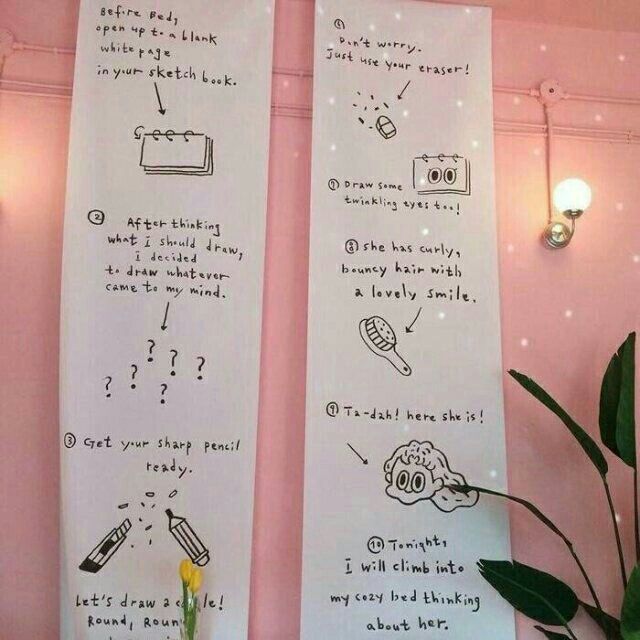 Before Bed,
open up to a blank
white page
in your sketch book.
②
After thinking
what I should draw,
i decided
to draw whatever
came to my mind.
? ? ? ? ? ?
③ Get your sharp pencil
ready.
Let's draw a
Round, Round
⑥
Don't worry.
Just use your eraser!
⑦ Draw some
twinkling eyes too!
⑧ she has curly,
bouncy hair with
a lovely smile.
⑨ Ta-dah! here she is!
⑩ Tonight,
I will climb into
my cozy bed thinking
about her.